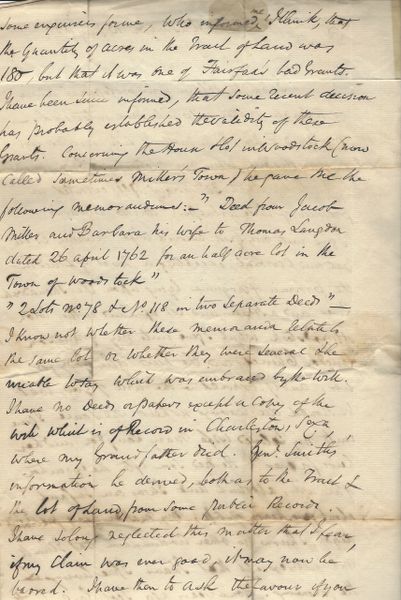 some enquiries for me, who informed me, I think, that
the Quantity of acres in the Tract of Land was
180, but that it was one of Fairfax's bad Grants.
I have been since informed, that some recent decision
has probably established the validity of these
Grants. Concerning the House & lot in Woodstock (now
called sometimes Millers Town) he gave me the
following memorandums:—" Deed from Jacob
Miller and Barbara his wife to Thomas Langdon
dated 26 april 1762 for an half acre lot in the
Town of Woodstock"
"2 Lots No 78 & No 118 in two Separate Deeds"—
I know not whether these memoranda relate to
the same lot or whether they were several
which was embraced by the will.
I have no Deeds or papers except a Copy of the
will which is of Record in Charleston, So Ca,
where my Grandfather died. Gen. Smith's
information he derived, both as to the Tract &
the lot of Land, from some Public Records.
I have so long neglected this matter that I fear,
if my Claim was ever good, it may now be
barred. I have then to ask the favour of you